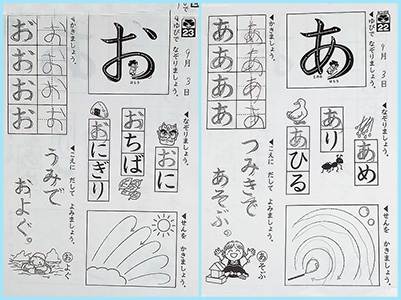 22
あ
9月3日
◀ゆびで なぞりましょう。
◀かきましょう。
あ あ
あ あ
あ あ
あ あ
◀なぞりましょう。
あめ
あり
あひる
◀こえに だして よみましょう。
つみきで
あそぶ。
◀せんを かきましょう。
あそぶ
23
お
9月3日
◀ゆびで なぞりましょう。
◀かきましょう。
お お
お お
お お
お お
◀なぞりましょう。
おに
おちば
おにぎり
◀こえに だして よみましょう。
うみで
およぐ。
◀せんを かきましょう。
およぐ